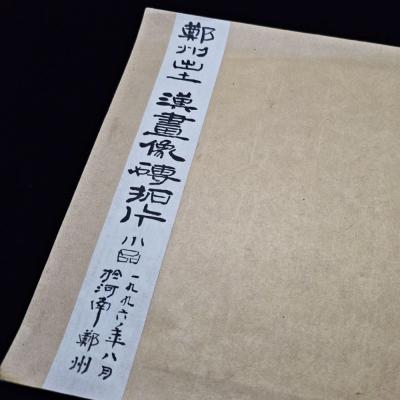 鄭州出土 漢畫像磚拓片
小品
一九九六年八月
於河南鄭州